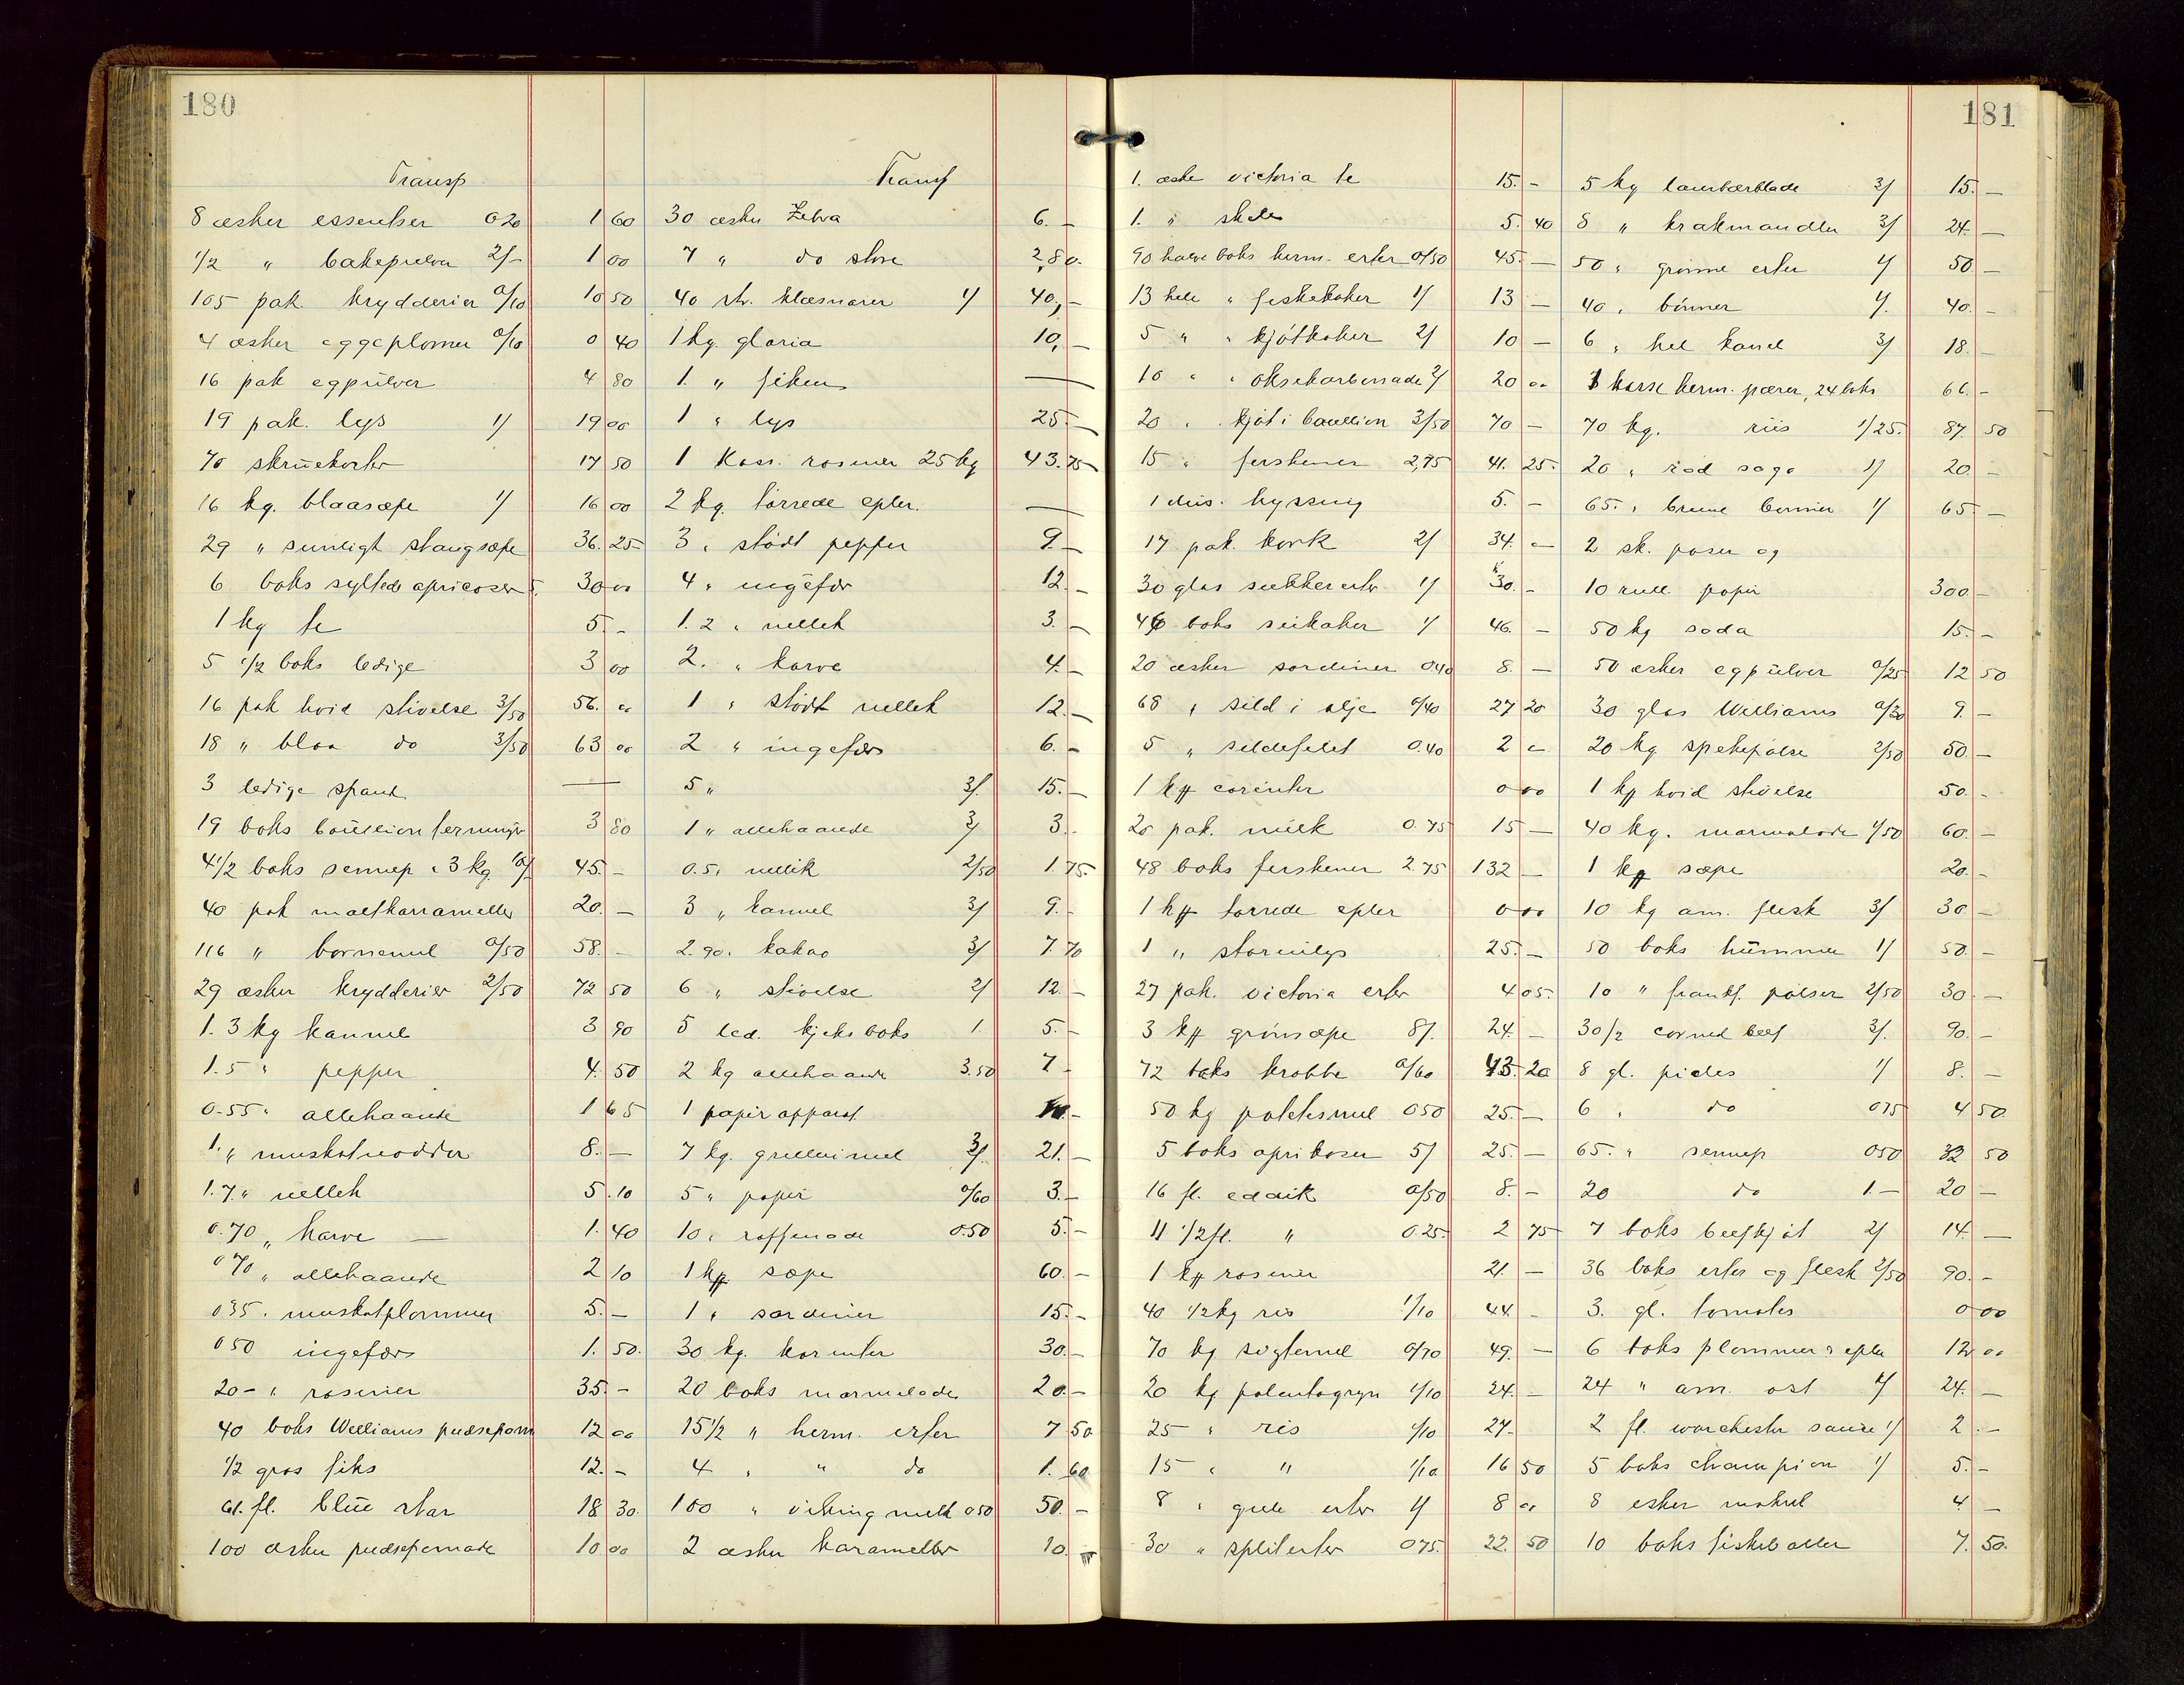 180
Transp
8 æsker essentser 0 20 1 60
1/2 " bakepulver 2/- 1 00
105 pak krydderier 0/10 10 50
4 æsker eggeplomer 0/10 0 40
16 pak egpulver 4 80
19 pak. lys 1/ 19 00
70 skruekorker 17 50
16 kg. blaasæpe 1/ 16 00
29 " sunligt stangsæpe 36. 25
6 boks syltede apricoser 5. 30 00
1 kg te 5. -
5 1/2 boks ledige 3 00
16 pak hvid stivelse 3/50 56. 00
18 " blaa do 3/50 63 00
3 ledige spand —
19 boks boullion terninger 3 80
4 1/2 boks sennep a 3 kg 10/ 45. -
40 pak maltkarrameller 20. -
116 " barnemel 0/50 58. -
29 æsker krydderier 2/50 72 50
1. 3 kg kannel 3 90
1.5 " pepper 4. 50
0.55 " allehaande 1 65
1. " muskatnødder 8. -
1.7 " nellek 5. 10
0.70 " karve — 1. 40
0 70 " allehaande 2 10
0 35 . muskatplommer 5. -
0 50 ingefær 1. 50.
20 - " rosiner 35. -
40 boks Williams pudsepom 12 00
1/2 gros fiks 12. -
61. fl. blue star 18 30.
100 æsker pudsepomade 10 00
Transp
30 æsker Zebra 6. -
7 " do store 2,80.
40 str. klæsnorer 1/ 40, -
1 kg. gloria 10, -
1. " fiken —
1 " lys 25. -
1 Kass. rosiner 25 kg 43. 75
2 kg. tørrede epler. —
3 " stødt pepper 9. -
4 " ingefær 12. -
1.2 " nellek 3. -
2. " karve 4. -
1 " stødt nellek 12. -
2 " ingefær 6. -
5 " 3/. 15. -
1 " allehaande 3/ 3.
0.5 " nellik 2/50 1. 75.
3 " kannel 3/ 9. -
2.90 " kakao 3/ 7. 70
6 " stivelse 2/ 12. -
5 led. kjeksboks 1. 5. -
2 kg allehaande 3.50 7 -
1 papirapparat
7 kg. grillermel 3/. 21. -
5 " papir 0/60 3. -
10 " raffinade 0.50 5. -
1 kss sæpe 60. -
1 " sardiner 15. -
30 kg. korinter 30. -
20 boks marmelade 20. -
15 1/2 " herm. erter 7 50
4 " " do 1. 60
100 " viking melk 0 50 50. -
2 æsker karameller 10. -
181
1. æske victoria te 15. -
1. " skde 5. 40
90 halve boks herm. erter 0/50 45. -
13 hele " fiskekaker 1/ 13 -
5 " " kjøtkaker 2/ 10 -
10 " " oksekarbonade 2/ 20 00
20 " kjøt i boullion 3/50 70 -
15 " ferskener 2,75 41. 25.
1 dus. hyssing 5. -
17 pak. kork 2/ 34. -
30 glas sukkererter 1/ 30. -
46 boks seikaker 1/ 46. -
20 æsker sardiner 0.40 8. -
68 " sild i olje 0/40 27 20
5 " sildefilet 0.40 2 -
1 kss corinter 0 00
20 pak. milk 0.75 15 -
48 boks ferskener 2.75 132 -
1 kss tørrede epler 0 00
1 " stormlys 25. -
27 pak. victoria erter 4 05.
3 kss grønsæpe 8/. 24. -
72 boks krabbe 0/60 43. 20
50 kg potetesmel 0 50 25. -
5 boks aprikoser 5/ 25. -
16 fl. eddik 0/50 8. -
11 1/2 fl. " 0.25. 2 75
1 kss rosiner 21. -
40 1/2 kg ris 1/10 44. -
70 kg sigtemel 0/70 49. -
20 kg polentagryn 1/10 24. -
25 " ris 1/10 27 -
15 " " 1/10 16 50
8 " gule erter 1/ 8 00
30 " spliterter 0 75. 22. 50
5 kg laurbærblade 3/ 15. -
8 " krakmandler 3/ 24. -
50 " grønne erter 1/ 50. -
40 " bønner 1/. 40. -
6 " hel kanel 3/ 18. -
1 kasse herm. pærer, 24 boks 66. -
70 kg. riis 1/25. 87. 50
20 " rød sago 1/ 20. -
65. " brune bønner 1/ 65. -
2 sk. poser og
10 rull. papir 300. -
50 kg soda 15. -
50 æsker egpulver 0/25 12 50
30 glas Williams 0/30 9. -
20 kg spekepølse 2/50 50. -
1 kss hvid stivelse 50. -
40 kg. marmelade 1/50 60. -
1 kss sæpe 20. -
10 kg am. flesk 3/ 30 -
50 boks hummer 1/ 50. -
10 " frankf. pølser 2/50 30. -
30 1/2 corned beef 3/. 90. -
8 gl. picles 1/ 8. -
6 " do 0 75 4 50.
65. " sennep 0 50 32 50
20 do 1. - 20 -
7 boks beefkjøt 2/ 14. -
36 boks erter og flesk 2/50 90. -
3. gl. tomates 0 00
6 boks plommer & epler 12 00
24 " am. ost 1/ 24. -
2 fl. worchester sauce 1/ 2. -
5 boks champion 1/ 5. -
8 esker makrel 4 -
10 boks fiskeboller 7. 50.